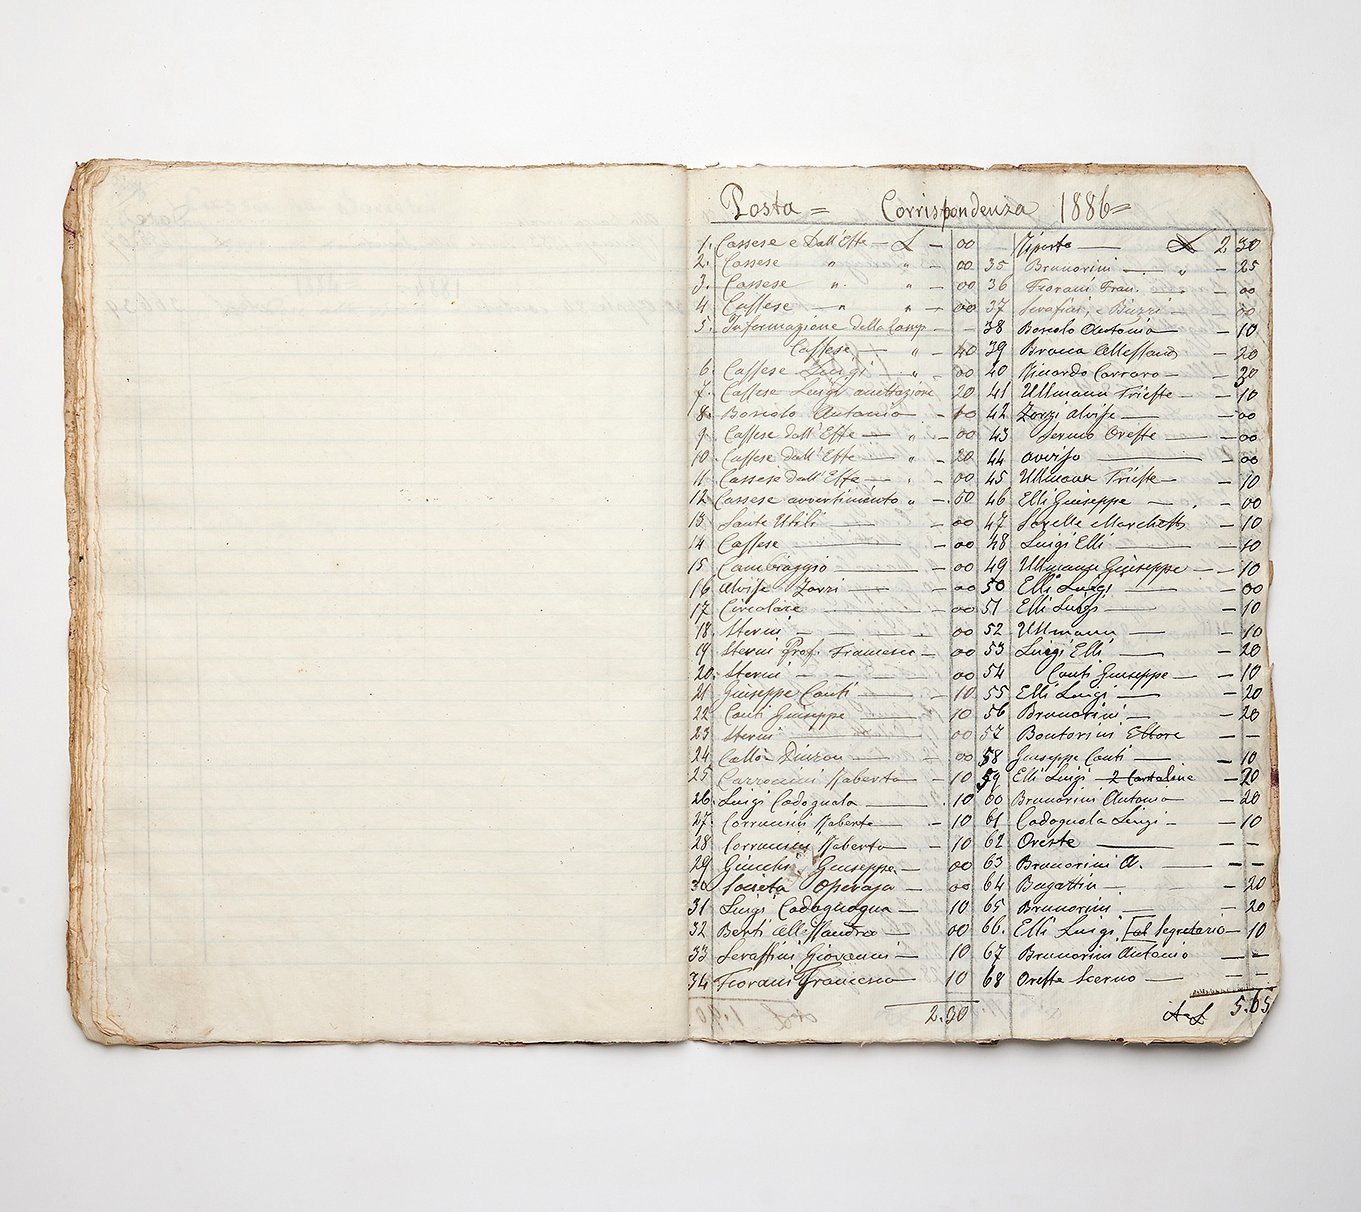 Posta = Corrispondenza 1886 =
1. Cassese e Dall'Este — £ — 00
2. Cassese " " — 00
3. Cassese " " — 00
4 Cassese — " " — 00
5. Informazione della Camp —
Cassese — " — 40
6 Cassese Luigi " — 00
7. Cassese Luigi 20
8. Boscolo Antonio — 00
9 Cassese dall'Este — " — 00
10. Cassese dall'Este — " — 20
11 Cassese dall'Este — " — 00
12 Cassese avvertimento " — 50
13 Sante Utili — 00
14 Cassese — 00
15 — 00
16 Alvise Zorzi — 00
17 Circolare — 00
18 Sterni — 00
19 Sterni Prof. Francesco — 00
20. Sterni — 00
21 Giuseppe Conti — 10
22 Conti Giuseppe — 10
23 Sterni — 00
24 00
25 Roberto — 10
26. Luigi Cadognola — 10
27. Roberto — 10
28 Roberto — 10
29 Giuseppe — 00
30 Società Operaja — 00
31 Luigi — 10
32 Berti Allessandro — 00
33 Seraffini Giovanni — 10
34 Fiorani Francesco — 10
2.30
Riporto — £ 2 30
35 Brunorini — " — 25
36 Fiorani Fran. — 00
37 Serafini, e Buzzi 00
38 Boscolo Antonio — 10
39 Allessand — 20
40 Riccardo Carraro — 20
41 Ullmann Trieste — 10
42 Zorzi Alvise — 00
43 Sermo Oreste — 00
44 avviso — 00
45 Ullmann Trieste — 10
46 Elli Giuseppe — 00
47 Sorelle Marchetti — 10
48 Luigi Elli — 10
49 Ullmann Giuseppe — 10
50 Elli Luigi — 00
51 Elli Luigi — 10
52 Ullmann — 10
53 Luigi Elli — 20
54 Conti Giuseppe — 10
55 Elli Luigi — 20
56 Brunorini — 20
57 Bontorini Ettore — —
58 Giuseppe Conti — 10
59 Elli Luigi — 2 Cartoline — 20
60 Brunorini Antonio — 20
61 Cadognola Luigi — 10
62 Oreste — —
63 Brunorini A. — —
64 Bugattin — 20
65 Brunorini — 20
66. Elli Luigi [al Segretario — 10
67 Brunorini Antonio — —
68 Oreste Scerno — —
5.65